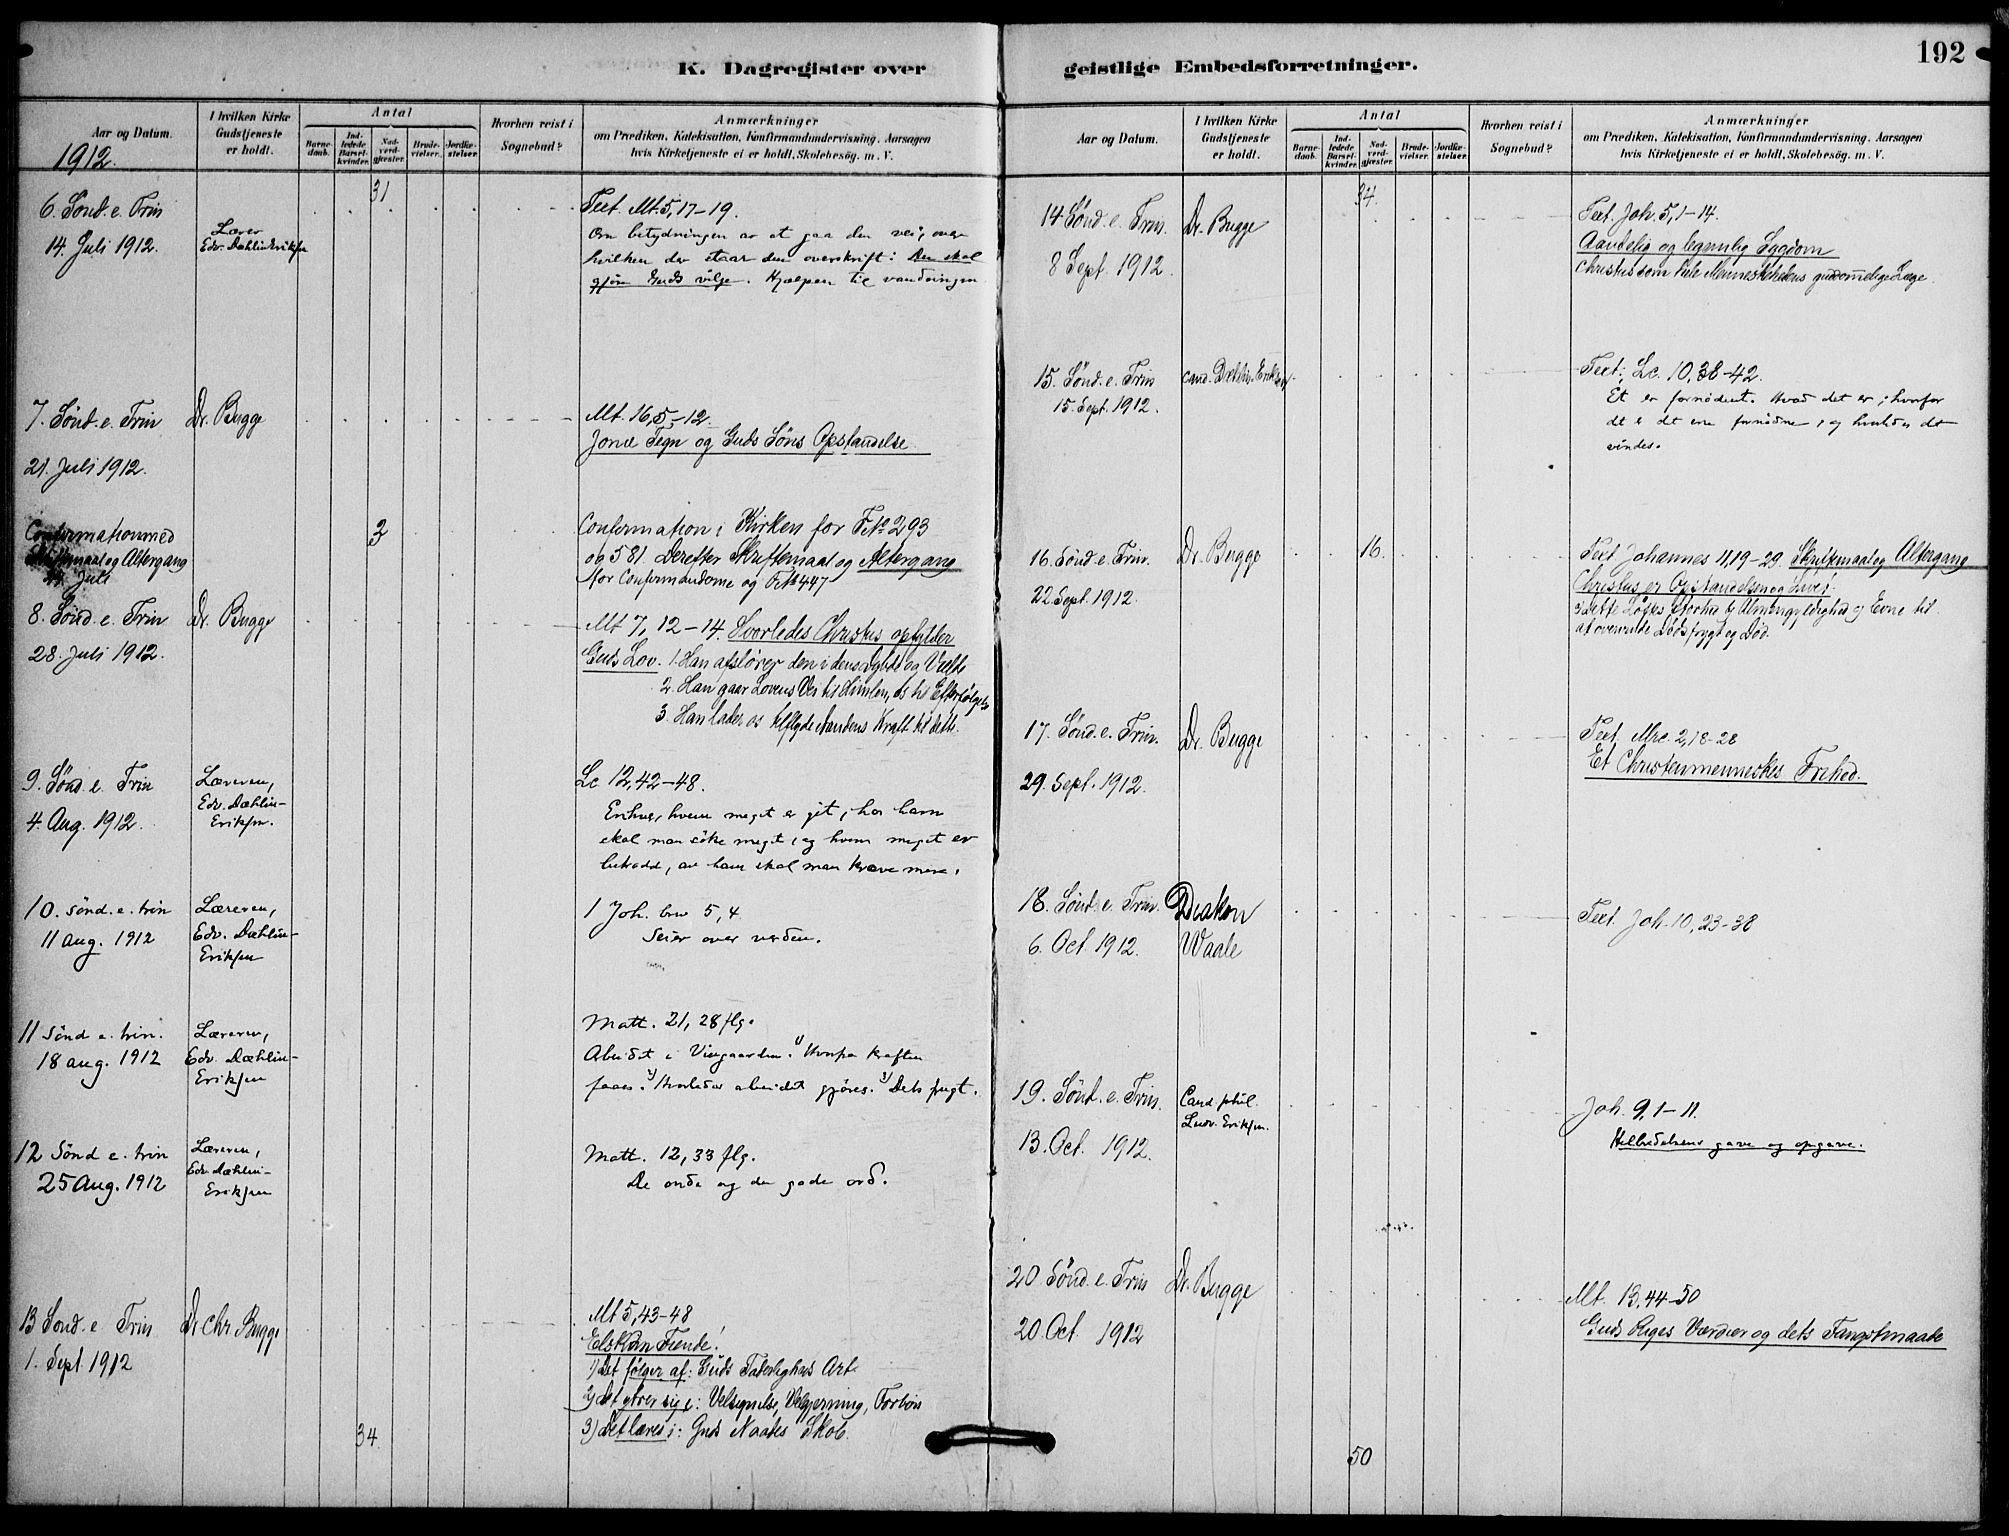 192
K. Dagregister over
geistlige Embedsforretninger.
Aar og Datum.
I hvilken Kirke
Gudstjeneste
er holdt.
Antal
Barne-
daab.
Ind-
ledede
Barsel-
kvinder.
Nad-
verd-
gjæster.
Brude-
vielser.
Jordfæ-
stelser.
Hvorhen reist i
Sognebud?
Anmærkninger
om Prædiken, Katekisation, Konfirmandundervisning, Aarsagen
hvis Kirketjeneste ei er holdt, Skolebesøg. m. V.
1912.
31
6. Sønd. e. Trin
14. Juli 1912.
Lærer
Edv. Dæhlin Eriksen
Text. Mt. 5, 17-19.
Om betydningen av at gaa den vei, over
hvilken der staar den overskrift: Den skal
gjøre Guds vilje. Hjælpen til vandringen
7. Sønd. e. Trin
21. Juli 1912.
Dr. Bugge
Mt. 16, 5-12.
Jonæ Tegn og Guds Søns Opstandelse.
Confirmation med
Skriftemaal og Altergang
Juli
3
Confirmation i Kirken for F. No 293
og 581. Derefter Skriftemaal og Altergang
for Confirmanderne og F. No 447
8. Sønd. e. Trin
28. Juli 1912.
Dr. Bugge
Mt 7, 12-14. Hvorledes Christus opfylder
Guds Lov. 1. Han afslører den i dens Dybde og Vidde
2. Han gaar Lovens Vei til Himlen, os til Efterfølgelse
3. Han lader os tilflyde Aandens Kraft til dette.
9. Sønd. e. Trin
4. Aug. 1912.
Læreren,
Edv. Dæhlin-
Eriksen.
Lc 12, 42-48.
Enhver, hvem meget er git, hos ham
skal man søke meget, og hvem meget er
betrodd, av ham skal man kræve mere.
10. sønd. e. trin
11 aug. 1912
Læreren,
Edv. Dæhlin-
Eriksen
1 Joh. brev 5, 4
Seier over verden.
11 sønd e. trin.
18 aug. 1912
Læreren,
Edv. Dæhlin-
Eriksen
Matt. 21, 28 flg.
Arbeidet i Vingaarden. 1) Hvorfra kraften
faaes. 2) Hvorledes arbeidet gjöres. 3) Dets frugt.
12 sönd e. trin
25 Aug. 1912
Læreren,
Edv. Dæhlin-
Eriksen
Matt. 12, 33 flg.
De onde og de gode ord.
13 Sønd. e. Trin
1. Sept 1912
Dr. Chr. Bugge
Mt 5, 43-48
Elsk din Fiende!
1) Det følger af: Guds Faderligheds Art
2) Det ytrer sig i: Velsignelse, Velgjerning, Forbøn
3) Det læres i: Guds Naades Skole.
34.
Aar og Datum.
I hvilken Kirke
Gudstjeneste
er holdt.
Antal
Barne-
daab.
Ind-
ledede
Barsel-
kvinder.
Nad-
verd-
gjæster.
Brude-
vielser.
Jordfæ-
stelser.
Hvorhen reist i
Sognebud?
Anmærkninger
om Prædiken, Katekisation, Konfirmandundervisning, Aarsagen
hvis Kirketjeneste ei er holdt, Skolebesøg. m. V.
34.
14 Sønd. e. Trin.
8 Sept. 1912.
Dr. Bugge
Text. Joh. 5, 1-14.
Aandelig og legemlig Sygdom
Christus som hele Menneskehedens guddommelige Læge.
15. Sønd. e. Trin
15. Sept. 1912.
cand. Dæhlin Eriksen
Text: Lc. 10, 38-42.
Et er fornødent. Hvad det er; hvorfor
det er det ene fornødne, og hvorledes det
vindes.
16. Sønd. e. Trin.
22. Sept. 1912.
Dr. Bugge
16.
Text Johannes 11, 19-29. Skriftemaal og Altergang
Christus er Opstandelsen og Livet.
dette Løftes Storhed og Almengyldighed og Evne til
at overvinde Dødsfrygt og Død.
17. Sønd. e. Trin.
29. Sept. 1912.
Dr. Bugge
Text. Mrc. 2, 18-28
Et Christenmenneskes Frihed.
18. Sønd. e. Trin.
6. Oct. 1912.
Diakon
Waale
Text Joh 10, 23-38
19. Sønd. e. Trin.
13. Oct. 1912.
Cand. phil.
Ludv. Eriksen.
Joh. 9, 1-11.
Helbredelsens gave og opgave.
20 Sønd. e. Trin
20 Oct. 1912
Dr. Bugge
Mt. 13, 44-50
Guds Riges Værdier og dets Fangstmaate
50